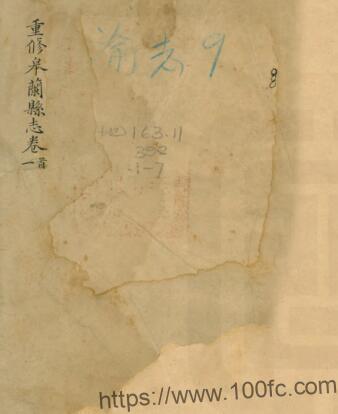 重修皋蘭縣志卷首一
渝志9
163.11
392
1-7
https://www.100fc.com